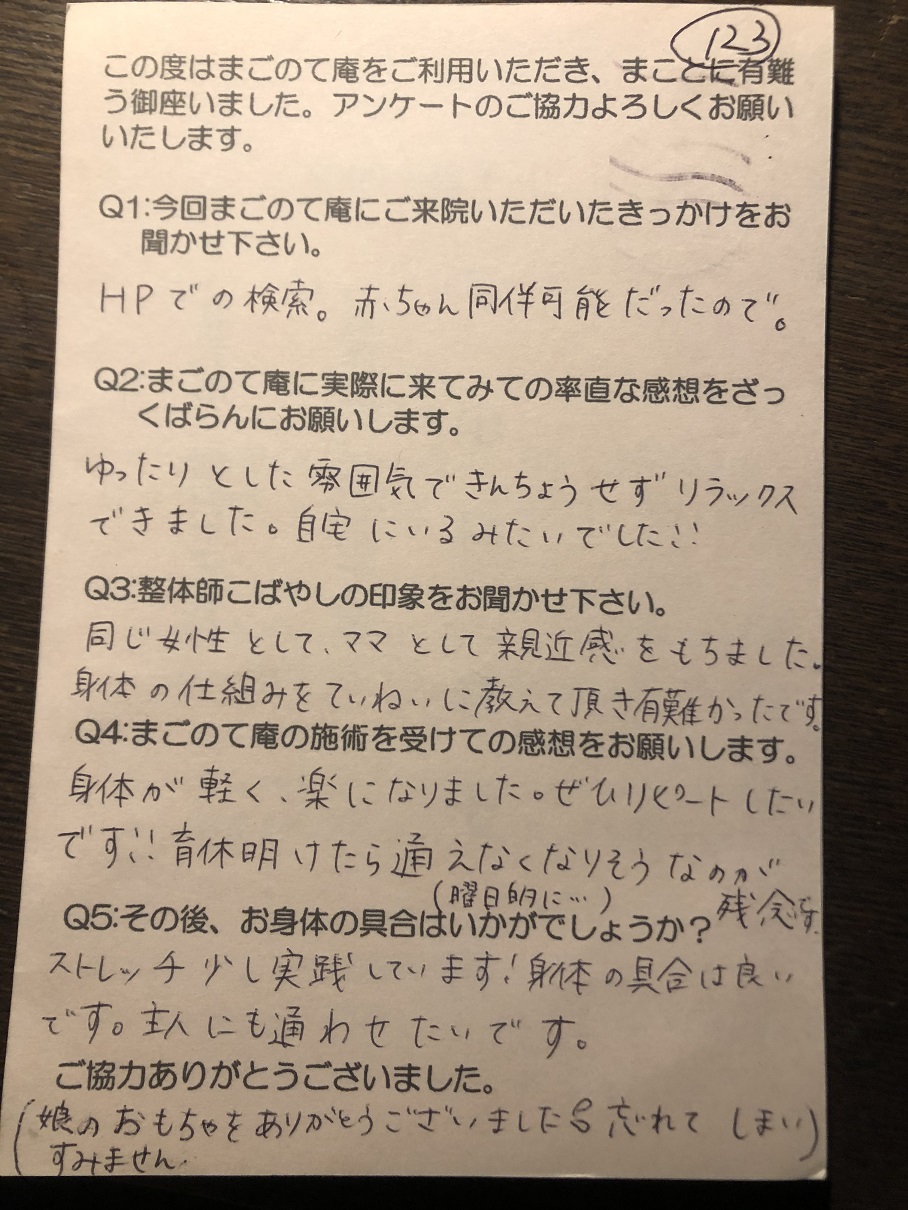 123
この度はまごのて庵をご利用いただき、まことに有難
う御座いました。アンケートのご協力よろしくお願い
いたします。
Q1:今回まごのて庵にご来院いただいたきっかけをお
聞かせ下さい。
HPでの検索。赤ちゃん同伴可能だったので。
Q2:まごのて庵に実際に来てみての率直な感想をざっ
くばらんにお願いします。
ゆったりとした雰囲気できんちょうせずリラックス
できました。自宅にいるみたいでした!!
Q3:整体師こばやしの印象をお聞かせ下さい。
同じ女性として、ママとして親近感をもちました。
身体の仕組みをていねいに教えて頂き有難かったです。
Q4:まごのて庵の施術を受けての感想をお願いします。
身体が軽く、楽になりました。ぜひリピートしたい
です!!育休明けたら通えなくなりそうなのが
(曜日的に…)
残念です。
Q5:その後、お身体の具合はいかがでしょうか?
ストレッチ少し実践しています!身体の具合は良い
です。主人にも通わせたいです。
ご協力ありがとうございました。
(娘のおもちゃをありがとうございました 忘れてしまい
すみません.)